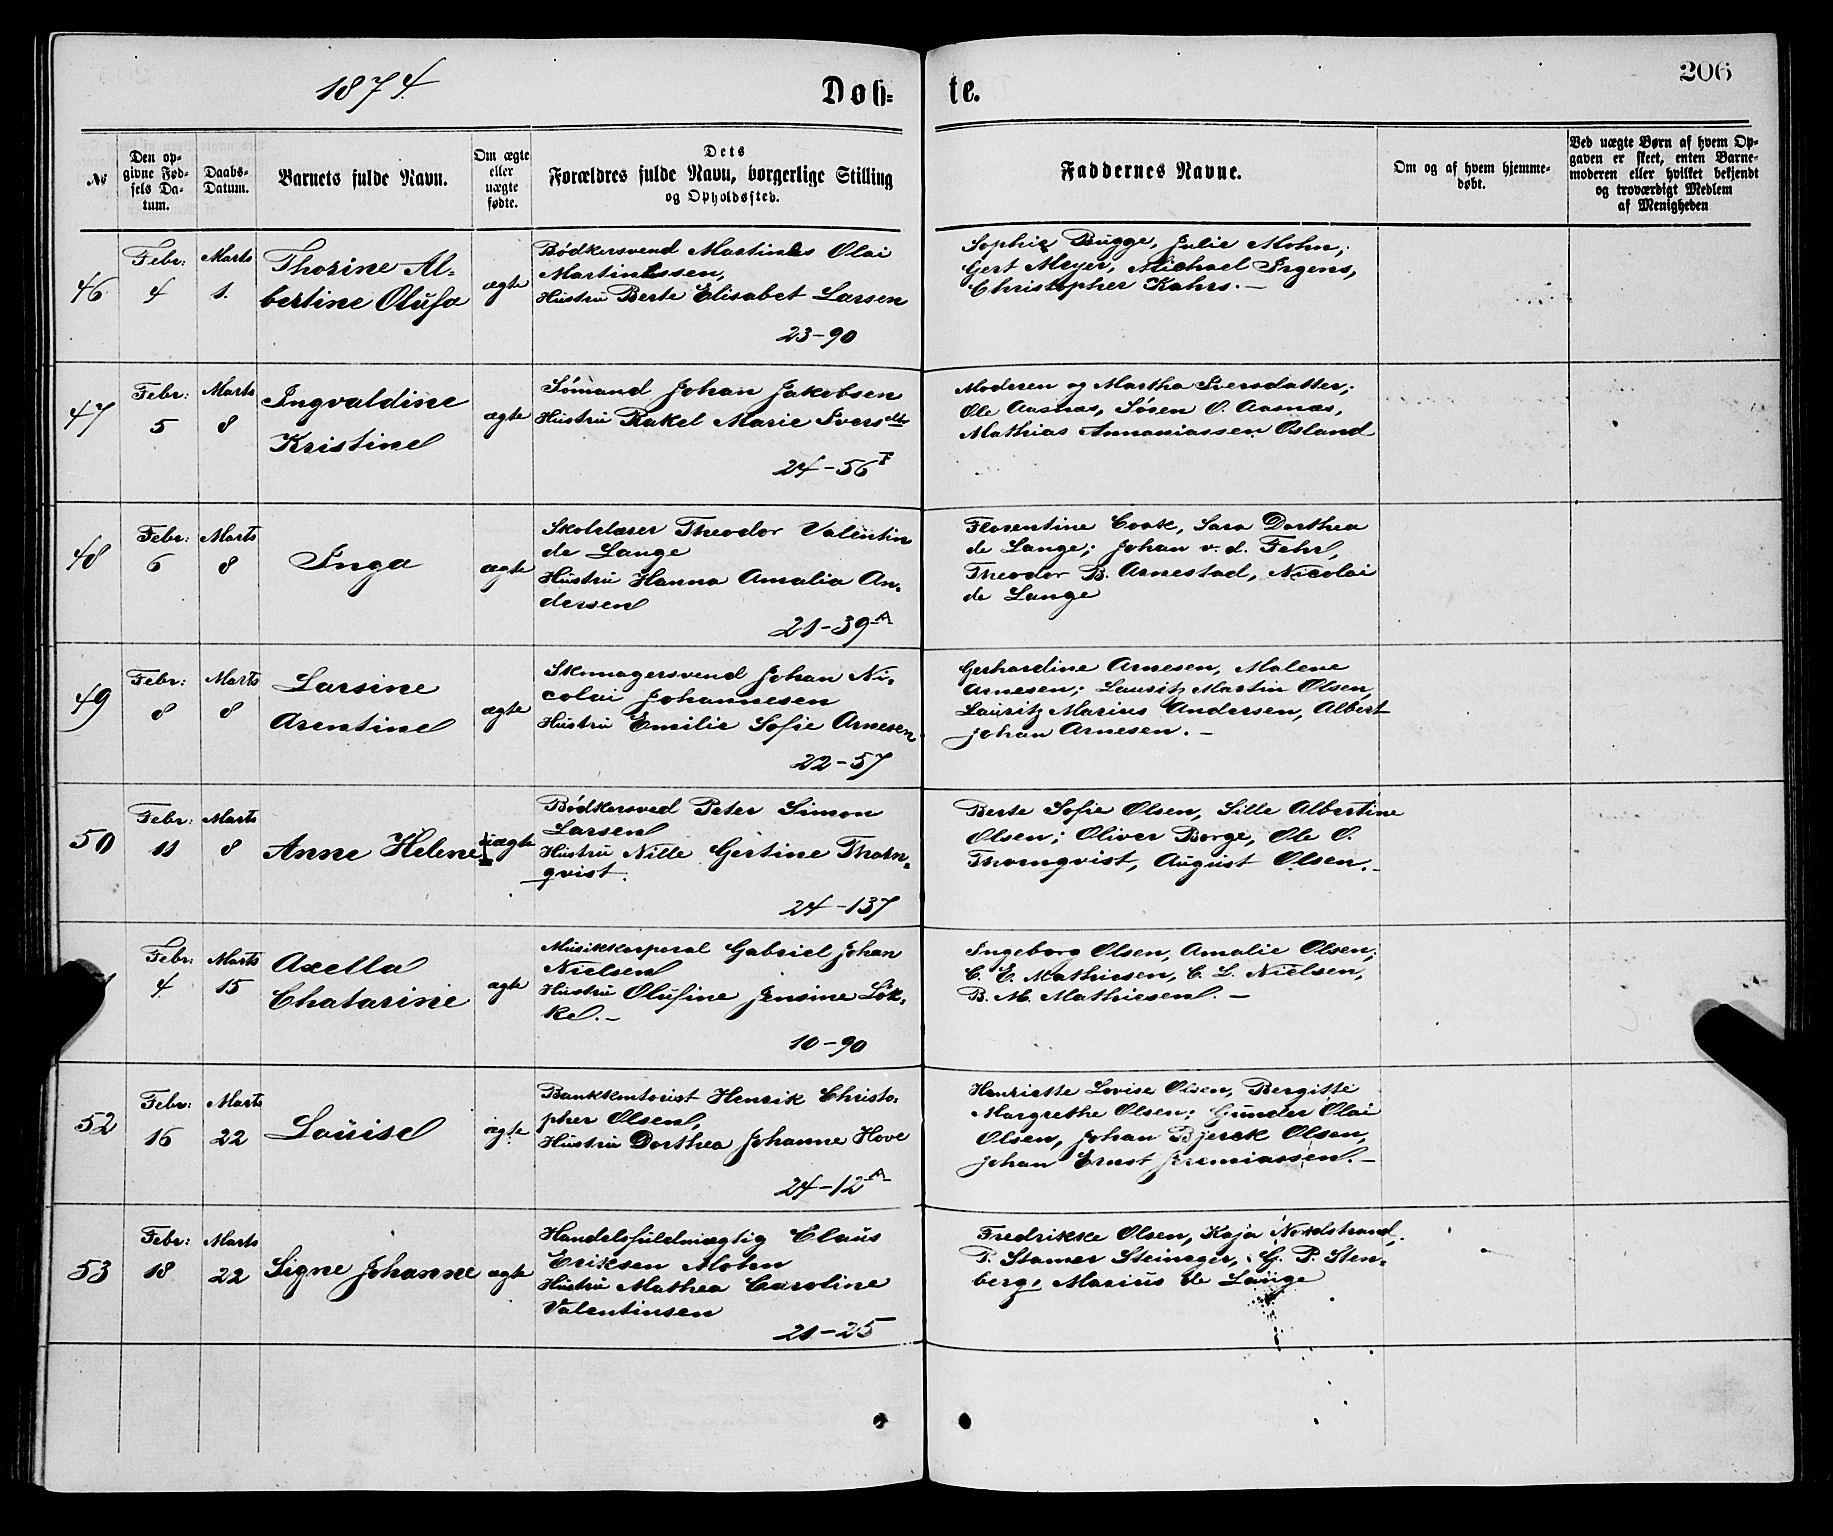 1874.
Døb=
te.
206
No
Den op-
givne Fød-
sels Da-
tum.
Daabs-
Datum.
Barnets fulde Navn.
Om ægte
eller
uægte
fødte.
Dets
Forældres fulde Navn, borgerlige Stilling
og Opholdssted.
Faddernes Navne.
Om og af hvem hjemme-
døbt.
Ved uægte Børn af hvem Op-
gaven er skeet, enten Barne-
moderen eller hvilket bekjendt
og troværdigt Medlem
af Menigheden
46
Febr:
4
Marts
1.
Thorine Al-
bertine Olufa
ægte
Bødkersvend Martines Olai
Martinessen,
Hustru Berte Elisabet Larsen
23-90
Sophie Bugge, Julie Mohn;
Gert Meyer, Michael Irgens,
Christopher Kahrs.-
47
Febr:
5
Marts
8
Ingvaldine
Kristine
ægte
Sømand Johan Jakobsen
Hustru Rakel Marie Iversdtr
24-56F
Moderen og Martha Iversdatter;
Ole Aasnæs, Søren O. Aasnæs,
Mathias Annaniassen Osland
48
Febr:
6
Marts
8
Inga
ægte
Skolelærer Theodor Valentin
de Lange
Hustru Hanna Amalia An-
dersen
21-39A
Florentine Cook, Sara Dorthea
de Lange; Johan v. d. Fehr,
Theodor B. Arnestad, Nicolai
de Lange
49
Febr:
8
Marts
8
Larsine
Arentine
ægte
Skomagersvend Johan Ni-
colai Johannesen
Hustru Emilie Sofie Arnesen
22-57
Gerhardine Arnesen, Malene
Arnesen; Lauritz Martin Olsen,
Lauritz Marius Andersen, Albert
Johan Arnesen.-
50
Febr:
11
Marts
8
Anne Helene
uægte
Bødkersved Peter Simon
Larsen
Hustru Nille Gertine Thorn-
qvist.
24-137
Berte Sofie Olsen, Sille Albertine
Olsen; Oliver Borge, Ole O.
Thornqvist, August Olsen.-
Febr:
4
Marts
15
Axella
Chatarine
ægte
Musikkorporal Gabriel Johan
Nielsen
Hustru Olufine Jensine Løk-
ke.-
10-90
Ingeborg Olsen, Amalie Olsen;
C. E. Mathiesen, C. L. Nielsen,
B. M. Mathiesen.-
52
Febr:
16
Marts
22
Louise
ægte
Bankkontorist Henrik Christo-
pher Olsen,
Hustru Dorthea Johanne Hove
24-12A
Henriette Lovise Olsen, Bergitte
Margrethe Olsen; Gunder Olai
Olsen, Johan Bjerck Olsen,
Johan Ernst Jeremiassen.-
53
Febr:
18
Marts
22
Signe Johanne
ægte
Handelsfuldmægtig Claus
Eriksen Mohn
Hustru Mathea Caroline
Valentinsen
21-25
Fredrikke Olsen, Kaja Nordstrand,
P. Stamer Steineger, G. P. Sten-
berg, Marius de Lange